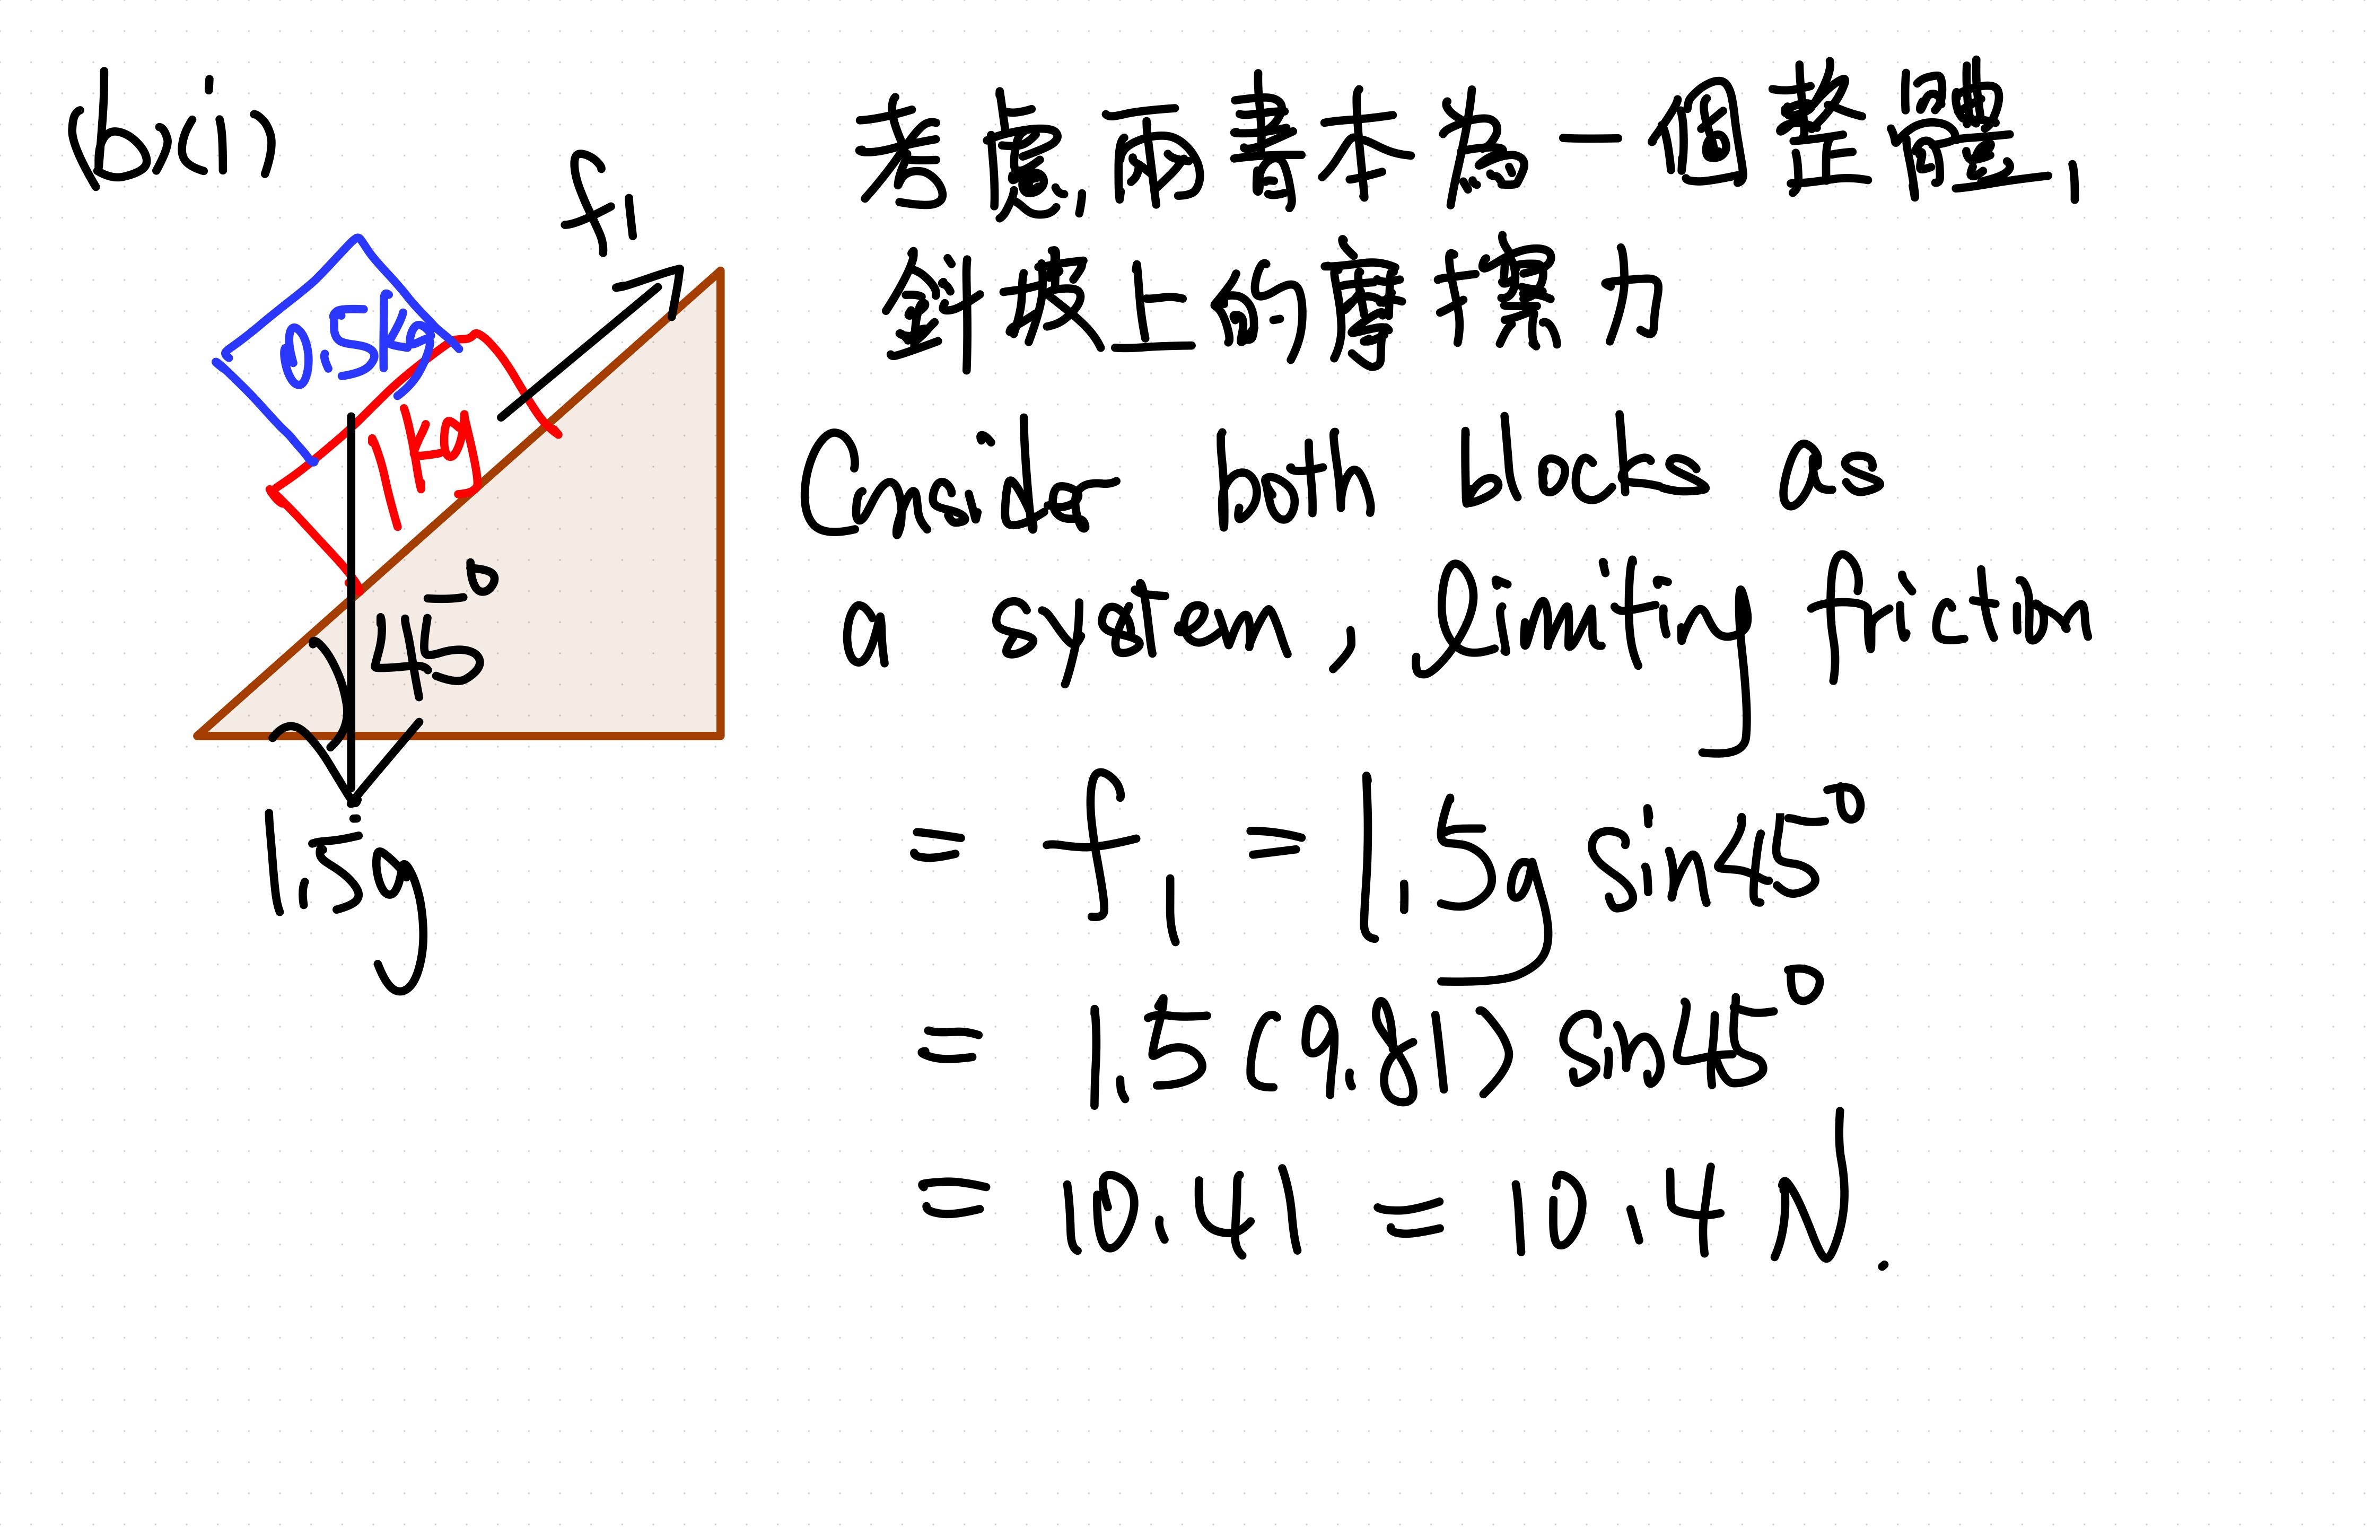 (b)(i)
f1
0.5kg
1kg
45°
1.5g
考慮,兩書本為一個整體,
斜坡上的摩擦力
Consider both blocks as
a system, limiting friction
= f1 = 1.5g sin45°
= 1.5(9.81) sin45°
= 10.41 = 10.4 N.